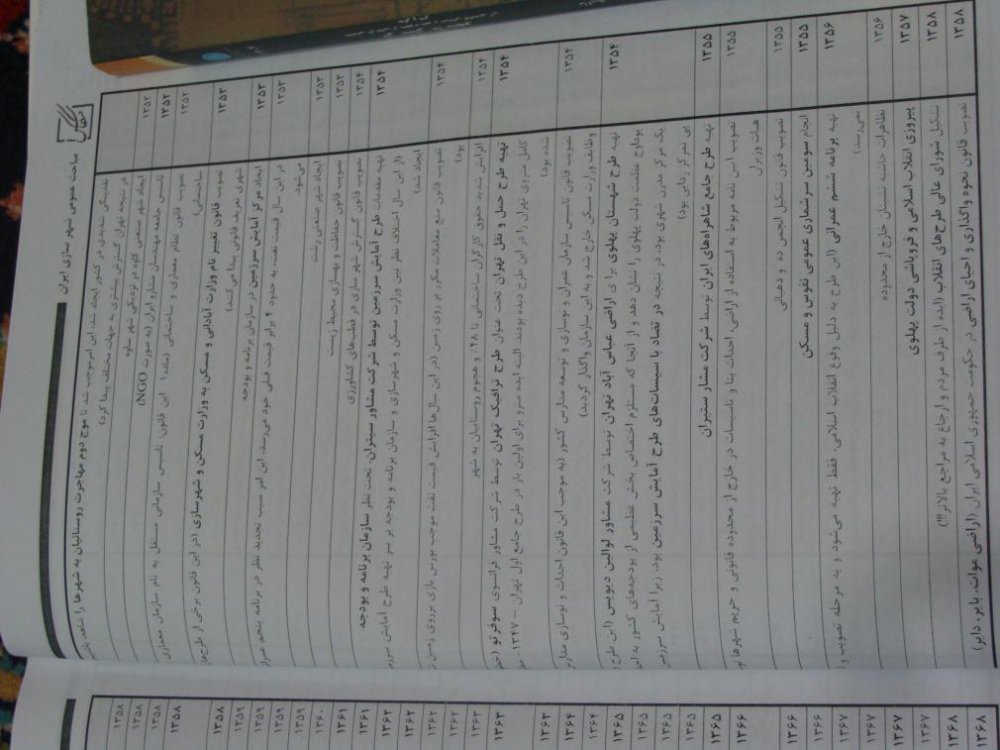 مباحث عمومی شهر سازی ایران
نقدینگی شدیدی در کشور ایجاد شد، این امر موجب شد تا موج دوم مهاجرت روستائیان به شهرها را شاهد
در نتیجه تهران گسترش بیشتری به جهات مختلف پیدا کرد)
۱۳۵۲ ایجاد شهر صنعتی کاوه در نزدیکی شهر ساوه
۱۳۵۲ تاسیس جامعه مهندسان مشاور ایران (به صورت NGO)
۱۳۵۲ تصویب قانون نظام معماری و ساختمانی (ماده۱ این قانون: تاسیس سازمانی مستقل به نام سازمان معماری
ساختمانی)
۱۳۵۳ تصویب قانون تغییر نام وزارت آبادانی و مسکن به وزارت مسکن و شهرسازی (در این قانون برخی از طرح‌های
شهری تعریف قانونی پیدا می‌کنند)
۱۳۵۳ ایجاد مرکز آمایش سرزمین در سازمان برنامه و بودجه
۱۳۵۳ در این سال قیمت نفت به حدود ۴ برابر قیمت قبلی خود می‌رسد، این امر سبب تجدید نظر در برنامه پنجم
می‌شود.
۱۳۵۳ ایجاد شهر صنعتی رشت
۱۳۵۳ تصویب قانون حفاظت و بهسازی محیط زیست
۱۳۵۴ تصویب قانون گسترش شهر سازی در قطب‌های کشاورزی
۱۳۵۴ تهیه مقدمات طرح آمایش سرزمین توسط شرکت مشاور سیتران، تحت نظر سازمان برنامه و بودجه
(از این سال اختلاف نظر بین وزارت مسکن و شهرسازی و سازمان برنامه و بودجه بر سر تهیه طرح آمایش
ایجاد شد)
۱۳۵۴ تصویب قانون منع معاملات مکرر بر روی زمین (در این سال‌ها افزایش قیمت نفت موجب بورس بازی برروی زمین
بود)
۱۳۵۴ افزایش شدید حقوق کارگران ساختمانی تا ۴۸٪ و هجوم روستاییان به شهر
۱۳۵۴ تهیه طرح حمل و نقل تهران تحت عنوان طرح ترافیک تهران توسط شرکت مشاور فرانسوی سوفرتو
کامل متروی تهران را در این طرح دیده بودند، البته ایده مترو برای اولین بار در طرح جامع اول تهران – ۱۳۴۷
شده بود)
۱۳۵۴ تصویب قانون تاسیس سازمان عمران و نوسازی و توسعه مدارس کشور (به موجب این قانون احداث و نوسازی
وظایف وزارت مسکن خارج شد و به این سازمان واگذار گردید)
۱۳۵۴ تهیه طرح شهستان پهلوی برای اراضی عباس آباد تهران توسط شرکت مشاور لوالین دیویس (این طرح
بود اوج عظمت دولت پهلوی را نشان دهد و از آنجا که مستلزم اختصاص بخش عظیمی از بودجه‌های کشور به
یک مرکز مدرن شهری بود، در نتیجه در تضاد با سیاست‌های طرح آمایش سرزمین بود، زیرا آمایش سرزمین
بی تمرکز زدایی بود)
۱۳۵۵ تهیه طرح جامع شاهراه‌های ایران توسط شرکت مشار ستیران
۱۳۵۵ تصویب آئین نامه مربوط به استفاده از اراضی، احداث بنا و تاسیسات در خارج از محدوده قانونی و حریم شهرها
هیات وزیران
۱۳۵۵ تصویب قانون تشکیل انجمن ده و دهبانی
۱۳۵۵ انجام سومین سرشماری عمومی نفوس و مسکن
۱۳۵۶ تهیه برنامه ششم عمرانی (این طرح به دلیل وقوع انقلاب اسلامی، فقط تهیه می‌شود و به مرحله تصویب و
نمی‌رسد)
۱۳۵۶ تظاهرات حاشیه نشینان خارج از محدوده
۱۳۵۷ پیروزی انقلاب اسلامی و فروپاشی دولت پهلوی
۱۳۵۸ تشکیل شورای عالی طرح‌های انقلاب (ایده از طرف مردم و ارجاع به مراجع بالاتر!!!)
۱۳۵۸ تصویب قانون نحوه واگذاری و احیای اراضی در حکومت جمهوری اسلامی ایران (اراضی موات، بایر، دایر)
۱۳۵۸
۱۳۵۸
۱۳۵۸
۱۳۵۸
۱۳۵۸
۱۳۵۹
۱۳۵۹
۱۳۵۹
۱۳۵۹
۱۳۶۰
۱۳۶۱
۱۳۶۱
۱۳۶۲
۱۳۶۲
۱۳۶۲
۱۳۶۳
۱۳۶۳
۱۳۶۳
۱۳۶۴
۱۳۶۴
۱۳۶۵
۱۳۶۵
۱۳۶۵
۱۳۶۵
۱۳۶۵
۱۳۶۶
۱۳۶۶
۱۳۶۶
۱۳۶۷
۱۳۶۷
۱۳۶۷
۱۳۶۷
۱۳۶۸
۱۳۶۸